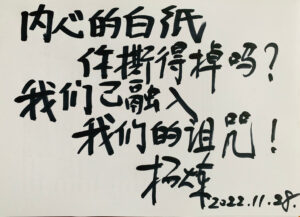 内心的白纸
你撕得掉吗?
我们已融入
我们的诅咒!
杨炼 2022.11.28.